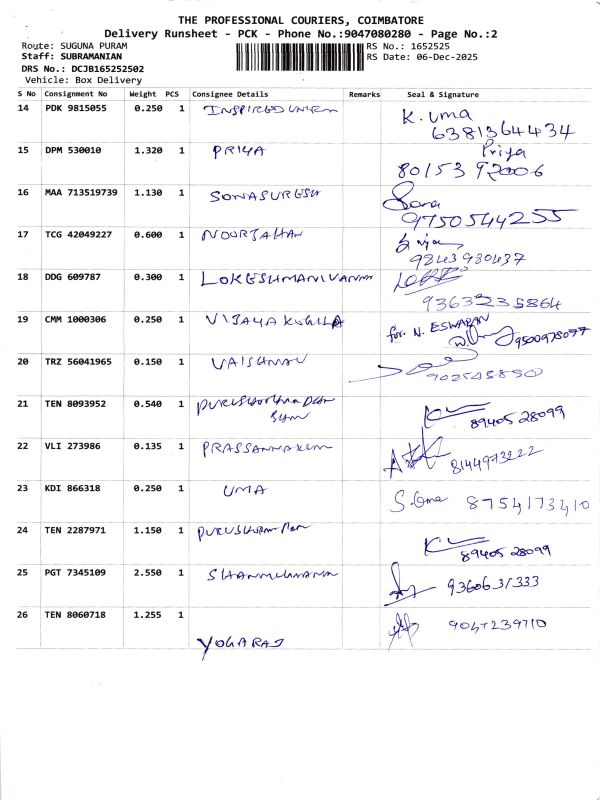 THE PROFESSIONAL COURIERS, COIMBATORE
Delivery Runsheet - PCK - Phone No.:9047080280 - Page No.:2
Route: SUGUNA PURAM RS No.: 1652525
Staff: SUBRAMANIAN RS Date: 06-Dec-2025
DRS No.: DCJB165252502
Vehicle: Box Delivery
S No Consignment No Weight PCS Consignee Details Remarks Seal & Signature
14 PDK 9815055 0.250 1 INSPIRED K. uma
6381364434
15 DPM 530010 1.320 1 PRIYA Priya
80153 92006
16 MAA 713519739 1.130 1 SONASURESH Sona
9750544255
17 TCG 42049227 0.600 1 NOORJAHAN
9843930437
18 DDG 609787 0.300 1 LOKESHMANIVANNAN
93632 35864
19 CMM 1000306 0.250 1 VIJAYAKUGILA for. N. ESWARAN
20 TRZ 56041965 0.150 1 VAISHNAV
21 TEN 8093952 0.540 1
89405 28099
22 VLI 273986 0.135 1 PRASSANNAKUM
8144973222
23 KDI 866318 0.250 1 UMA S. Uma 8754173410
24 TEN 2287971 1.150 1
89405 28099
25 PGT 7345109 2.550 1 9360631333
26 TEN 8060718 1.255 1
YOGARAJ